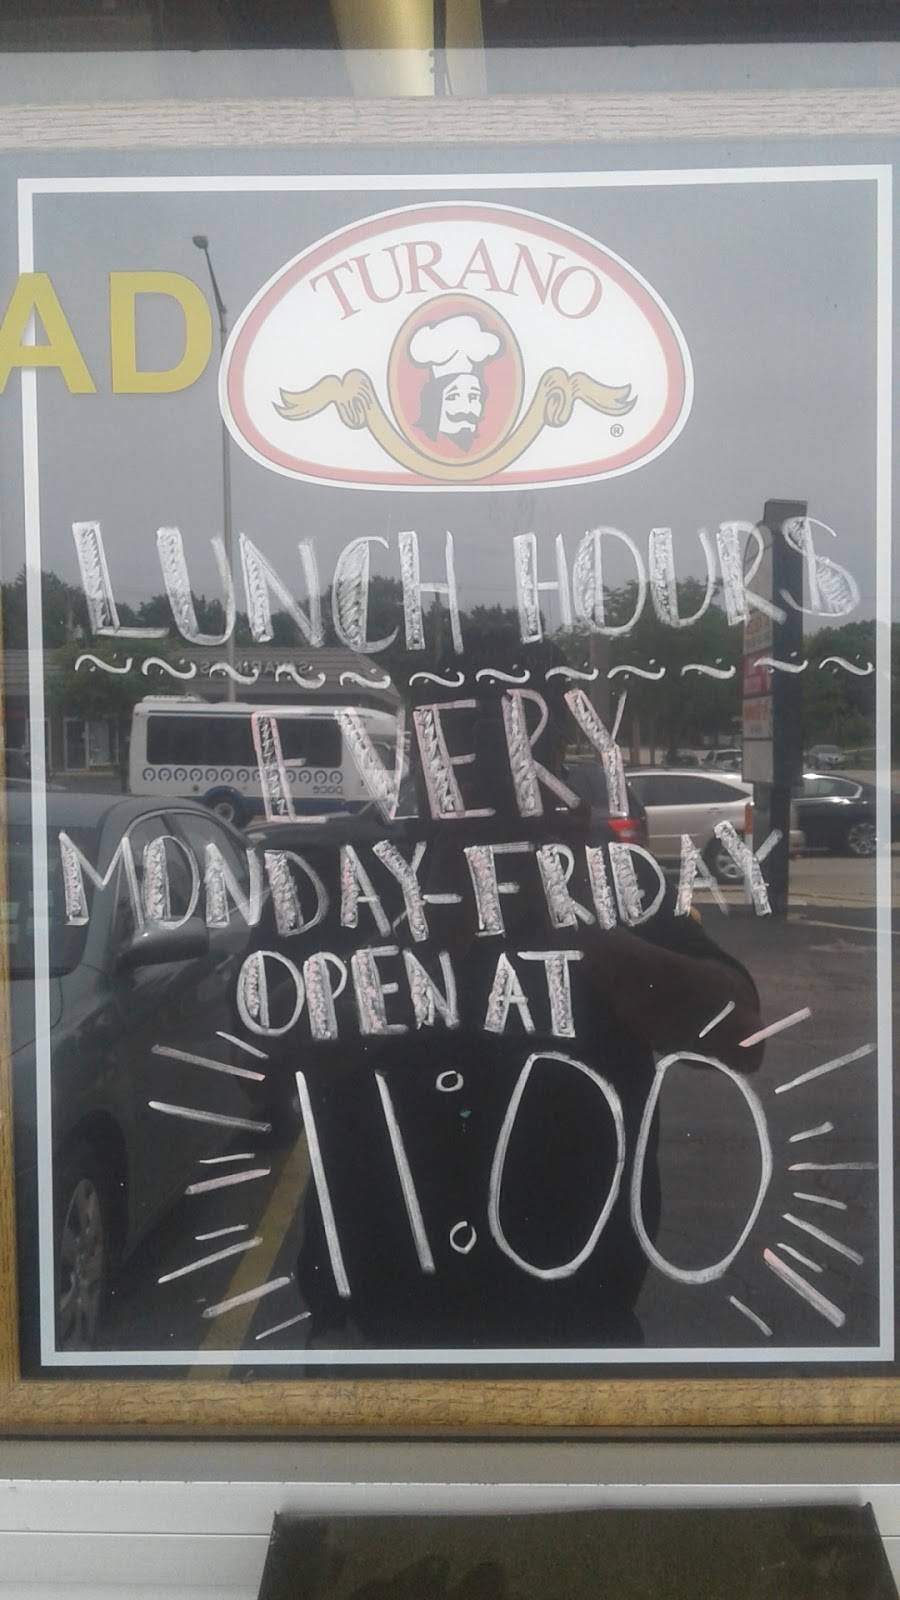 TURANO
®
AD
LUNCH HOURS
EVERY
MONDAY-FRIDAY
OPEN AT
11:00